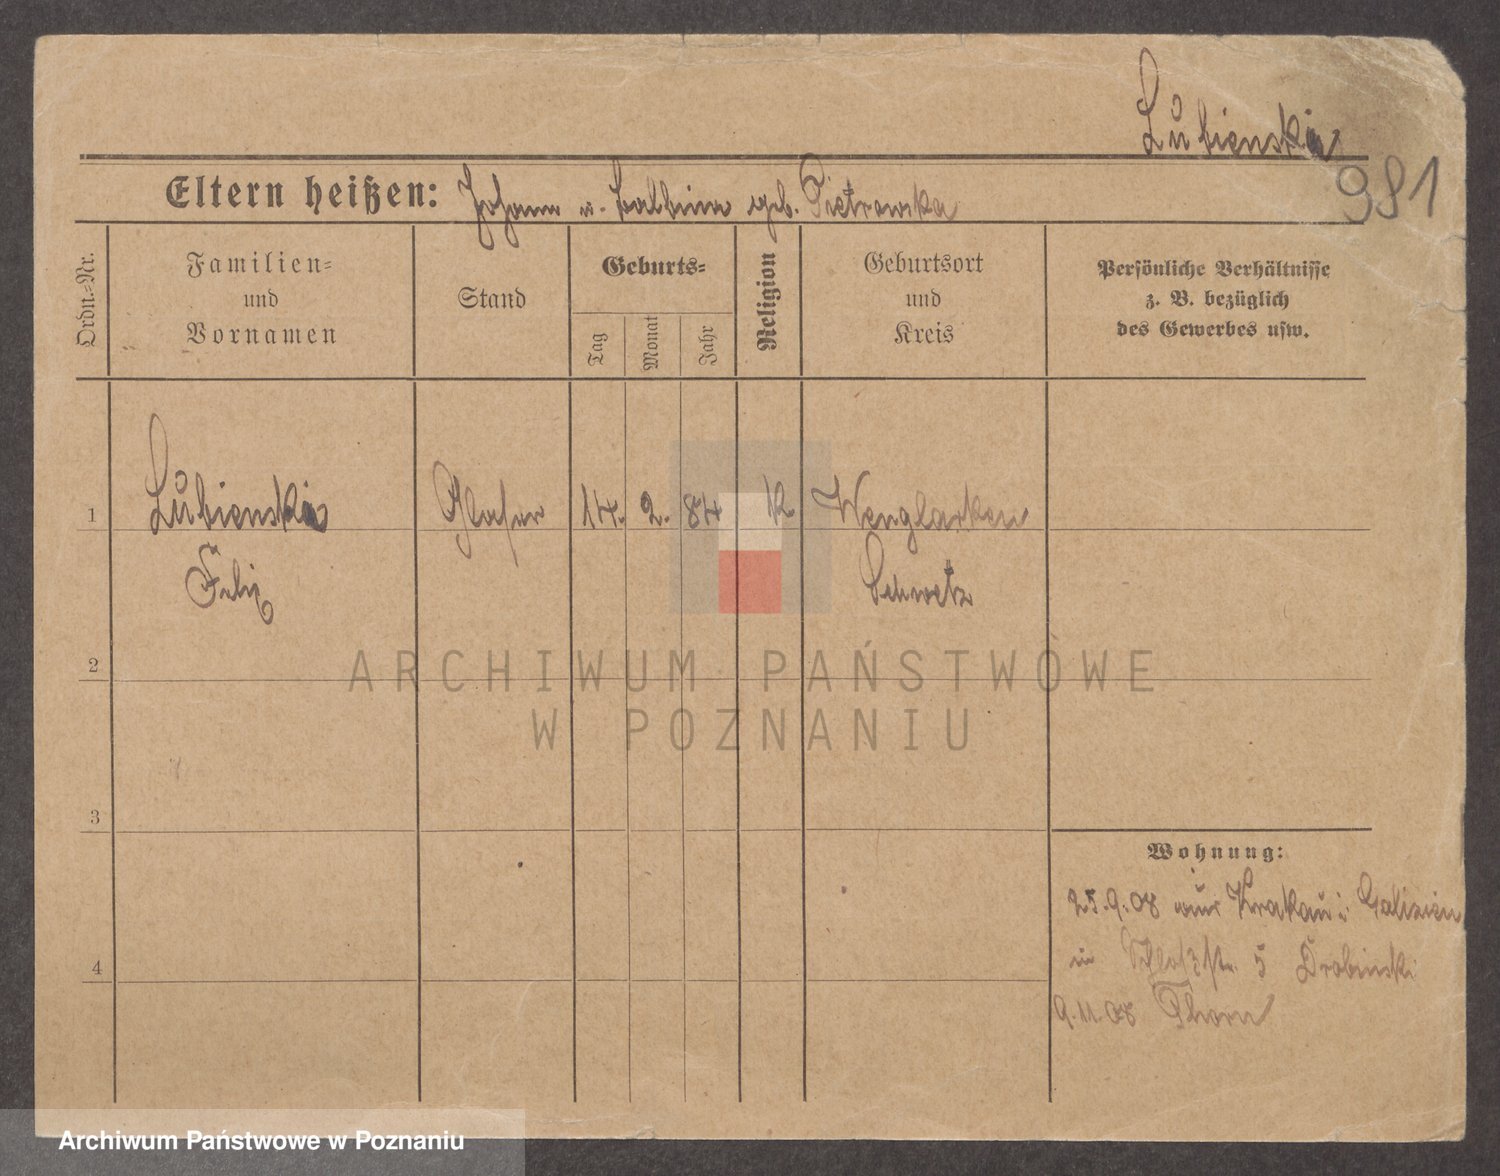 Lubienski
981
Eltern heißen: Johann u. Balbina geb. Pietrowska
Ordn.=Nr.
Familien=
und
Vornamen
Stand
Geburts=
Tag
Monat
Jahr
Religion
Geburtsort
und
Kreis
Persönliche Verhältnisse
z. B. bezüglich
des Gewerbes usw.
1
Lubienski Glaser 14. 2. 84 k
Felix
Schwetz
2
ARCHIWUM PAŃSTWOWE
W POZNANIU
3
4
Wohnung:
25.9.08 aus Krakau i Galizien
in Schloßstr. 5 Drobinski
9.11.08 Thorn
Archiwum Państwowe w Poznaniu